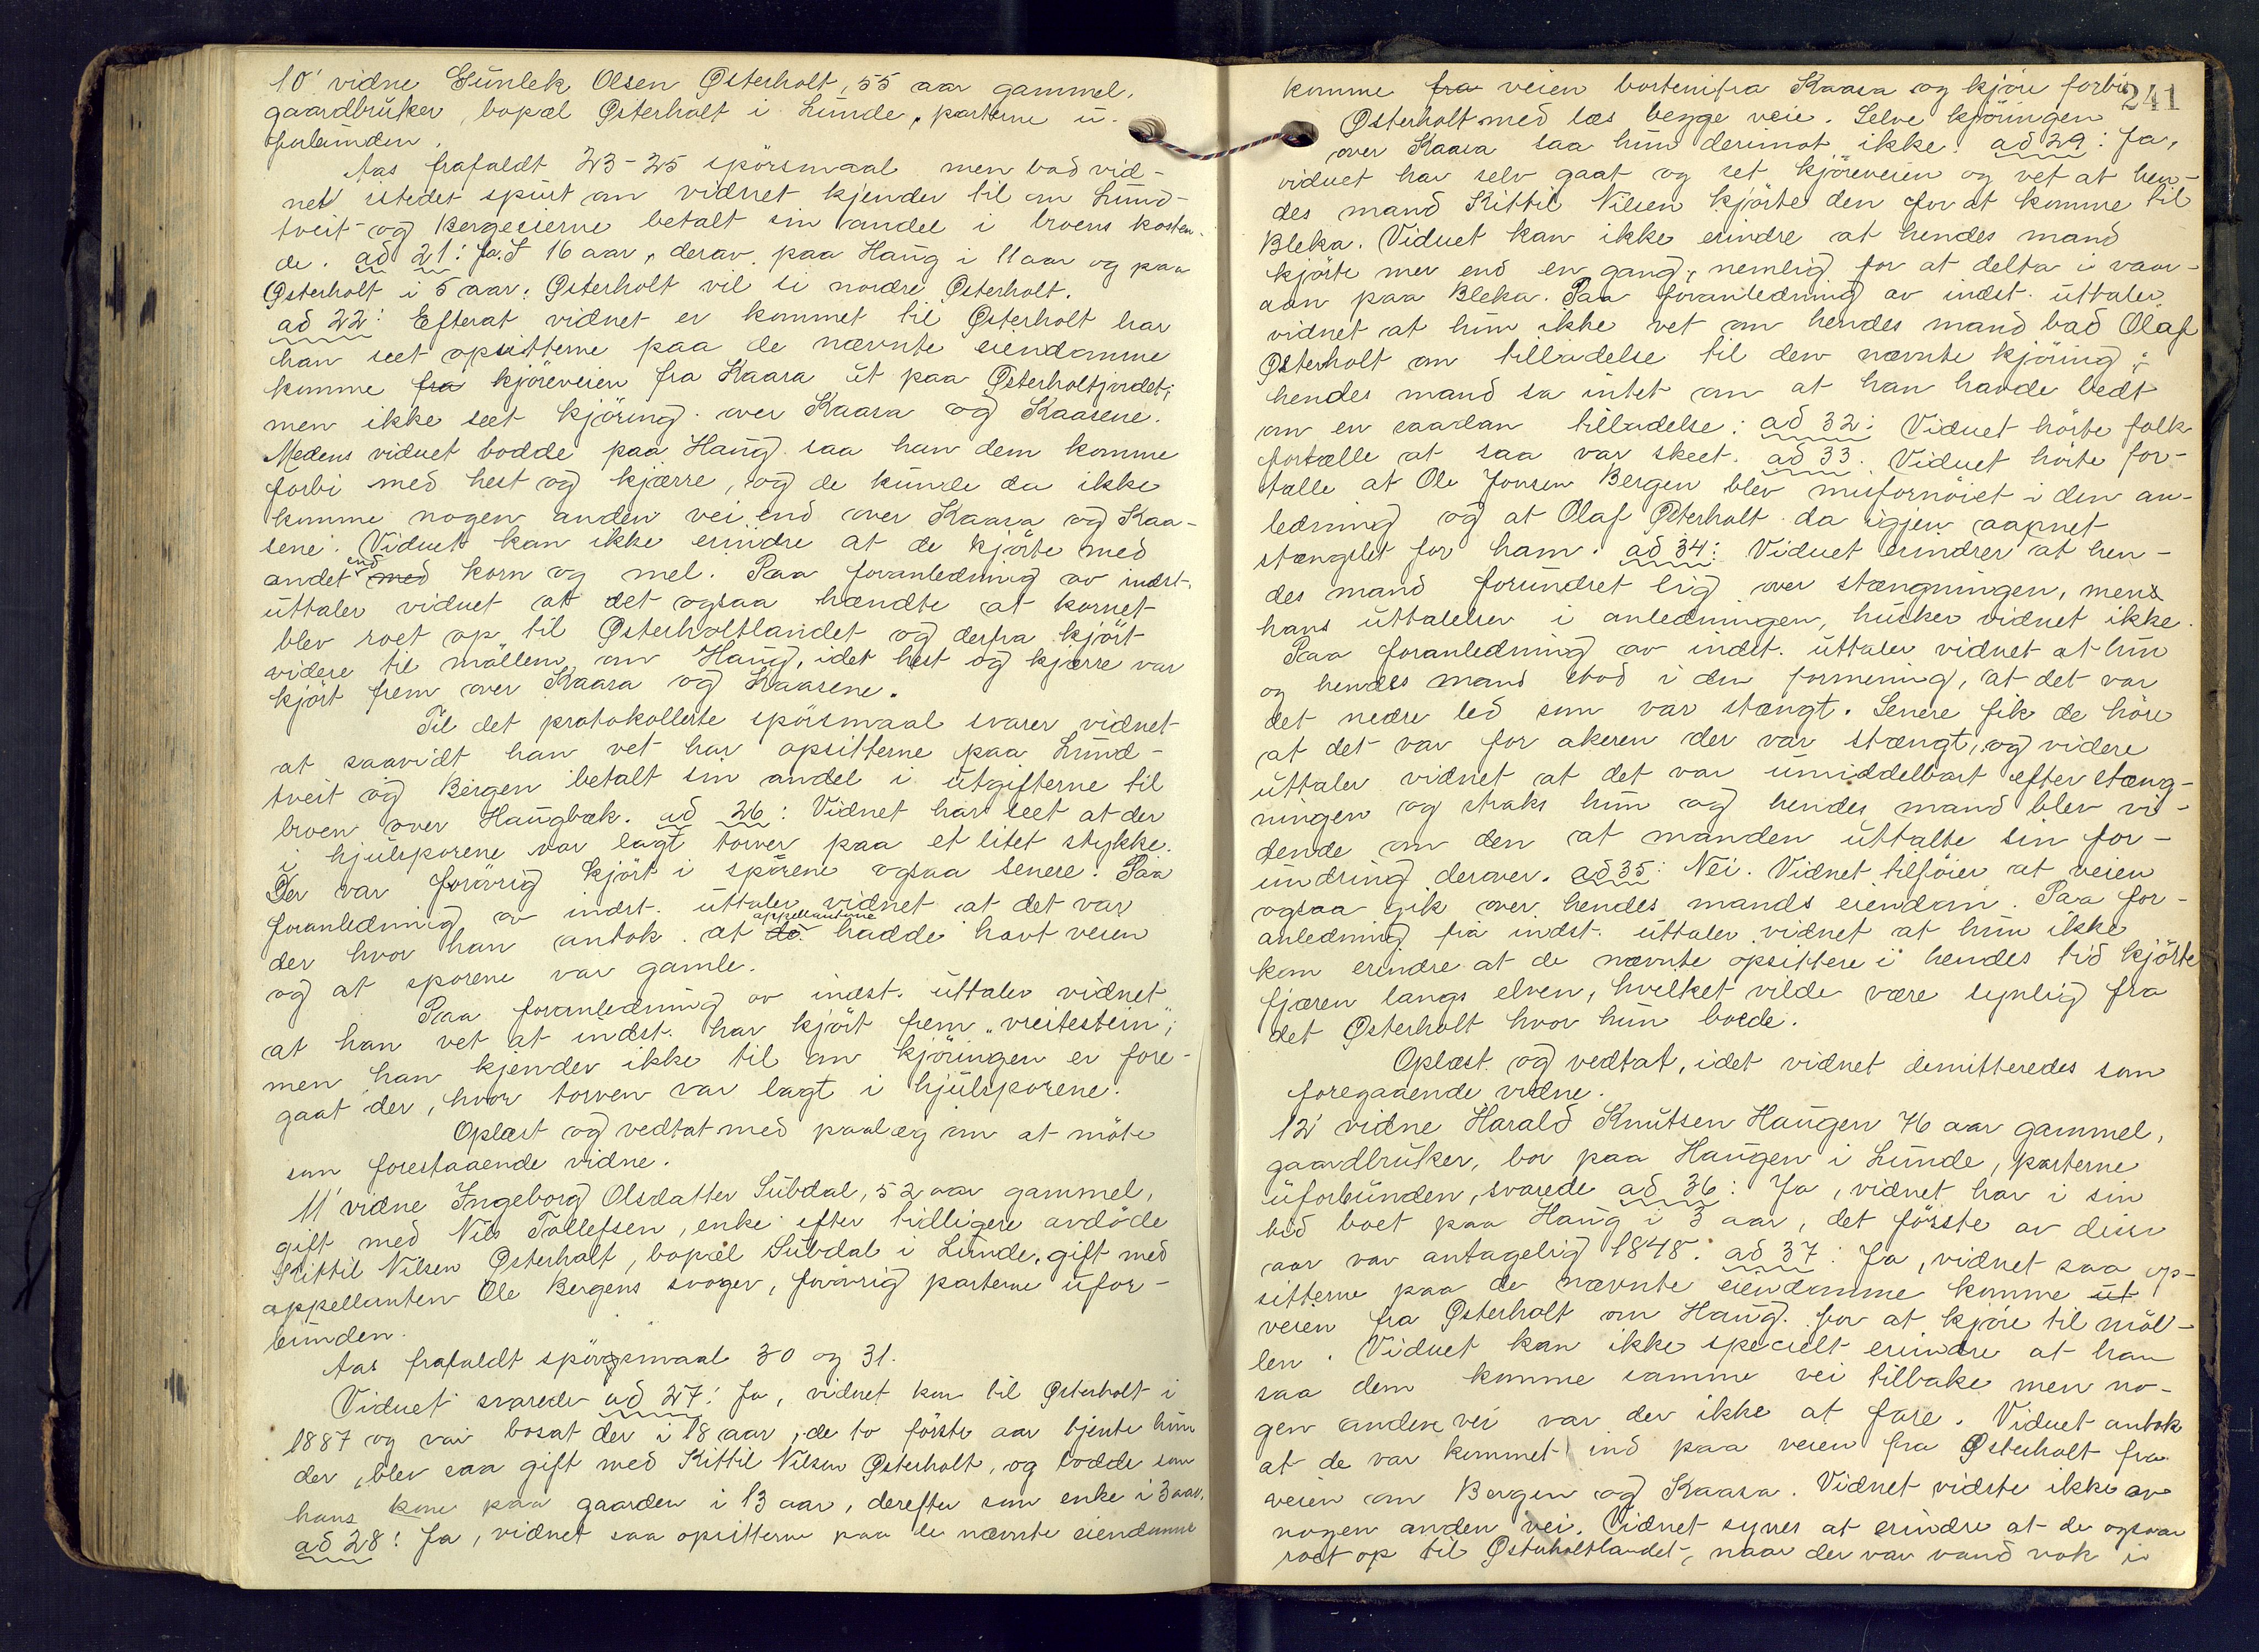 10' vidne Gunlek Olsen Østerholt, 55 aar gammel,
gaardbruker, bopæl Østerholt i Lunde, parterne u-
forbunden.
Aas frafaldt 23-25 spörsmaal men bad vid-
net istedet spurt om vidnet kjender til om Lund-
tveit- og Bergeeierne betalt sin andel i broens kosten-
de. ad 21: Ja. I 16 aar, derav paa Haug i 11 aar og paa
Østerholt i 5 aar. Østerholt vil si nordre Østerholt.
ad 22: Efterat vidnet er kommet til Østerholt har
han seet opsitterne paa de nævnte eiendomme
komme fra kjöreveien fra Kaasa ut paa Østerholtjordet;
men ikke seet kjöring over Kaasa og Kaasene.
Medens vidnet bodde paa Haug saa han dem komme
forbi med hest og kjærre, og de kunde da ikke
komme nogen anden vei end over Kaasa og Kaa-
sene. Vidnet kan ikke erindre at de kjörte med
andet end med korn og mel. Paa foranledning av indst.
uttaler vidnet at det ogsaa hændte at kornet
blev roet op til Østerholtlandet og derfra kjört
videre til möllem om Haug, idet hest og kjærre var
kjört frem over Kaasa og Kaasene.
Til det protokollerte spörsmaal svarer vidnet
at saavidt han vet har opsitterne paa Lund-
tveit og Bergen betalt sin andel i utgifterne til
broen over Haugbæk. ad 26: Vidnet har seet at der
i hjulsporene var lagt torver paa et litet stykke.
Der var forövrig kjört i sporene ogsaa senere. Paa
foranledning av indst. uttaler vidnet at det var
der hvor han antok at de appellantene hadde havt veien
og at sporene var gamle.
Paa foranledning av indst. uttaler vidnet
at han vet at indst. har kjört frem "vreitestein";
men han kjender ikke til om kjöringen er fore-
gaat der, hvor torven var lagt i hjulsporene.
Oplæst og vedtat med paalæg om at möte
som forestaaende vidne.
11' vidne Ingeborg Olsdatter Subdal, 52 aar gammel,
gift med Nils Tollefsen, enke efter tidligere avdöde
Kittil Nilsen Østerholt, bopæl Subdal i Lunde, gift med
appellanten Ole Bergens svoger, forövrig parterne ufor-
bunden.
Aas frafaldt spörsmaal 30 og 31.
Vidnet svarede ad 27: Ja, vidnet kom til Østerholt i
1887 og var bosat der i 18 aar, de to förste aar tjente hun
der, blev saa gift med Kittil Nilsen Østerholt, og bodde som
hans kone paa gaarden i 13 aar, derefter som enke i 3 aar.
ad 28: Ja, vidnet saa opsitterne paa de nævnte eiendomme
241
komme fra veien bortenifra Kaasa og kjöre forbi
Østerholt med læs begge veie. Selve kjöringen
over Kaasa saa hun derimot ikke. ad 29: Ja,
vidnet har selv gaat og set kjöreveien og vet at hen-
des mand Kittil Nilsen kjörte den for at komme til
Bleka. Vidnet kan ikke erindre at hendes mand
kjörte mer end en gang, nemlig for at delta i vaar-
aan paa Bleka. Paa foranledning av indst. uttaler
vidnet at hun ikke vet om hendes mand bad Olaf
Østerholt om tilladelse til den nævnte kjöring;
hendes mand sa intet om at han havde bedt
om en saadan tilladelse. ad 32: Vidnet hörte folk
fortælle at saa var skeet. ad 33: Vidnet hörte for-
tælle at Ole Jonsen Bergen blev misfornöiet i den an-
ledning og at Olaf Østerholt da igjen aapnet
stængslet for ham. ad 34: Vidnet erindrer at hen-
des mand forundret sig over stængningen, men
hans uttalelser i anledningen, husker vidnet ikke.
Paa foranledning av indst. uttaler vidnet at hun
og hendes mand stod i den formening, at det var
det nedre led som var stængt. Senere fik de höre
at det var for akeren der var stængt, og videre
uttaler vidnet at det var umiddelbart efter stæng-
ningen og straks hun og hendes mand blev vi-
dende om den at manden uttalte sin for-
undring derover. ad 35: Nei. Vidnet tilföier at veien
ogsaa gik over hendes mands eiendom. Paa for-
anledning fra indst. uttaler vidnet at hun ikke
kan erindre at de nævnte opsittere i hendes tid kjörte
fjæren langs elven, hvilket vilde være synlig fra
det Østerholt hvor hun boede.
Oplæst og vedtat, idet vidnet demitteredes som
foregaaende vidne.
12' vidne Harald Knutsen Haugen 76 aar gammel,
gaardbruker, bor paa Haugen i Lunde, parterne
uforbunden, svarede ad 36: Ja, vidnet har i sin
tid boet paa Haug i 3 aar, det förste av disse
aar var antagelig 1848. ad 37: Ja, vidnet saa op-
sitterne paa de nævnte eiendomme komme ut
veien fra Østerholt om Haug for at kjöre til möl-
len. Vidnet kan ikke specielt erindre at han
saa dem komme samme vei tilbake men no-
gen anden vei var der ikke at fare. Vidnet antok
at de var kommet ind paa veien fra Østerholt fra
veien om Bergen og Kaasa. Vidnet vidste ikke av
nogen anden vei. Vidnet synes at erindre at de ogsaa
roet op til Østerholtlandet, naar der var vand nok i